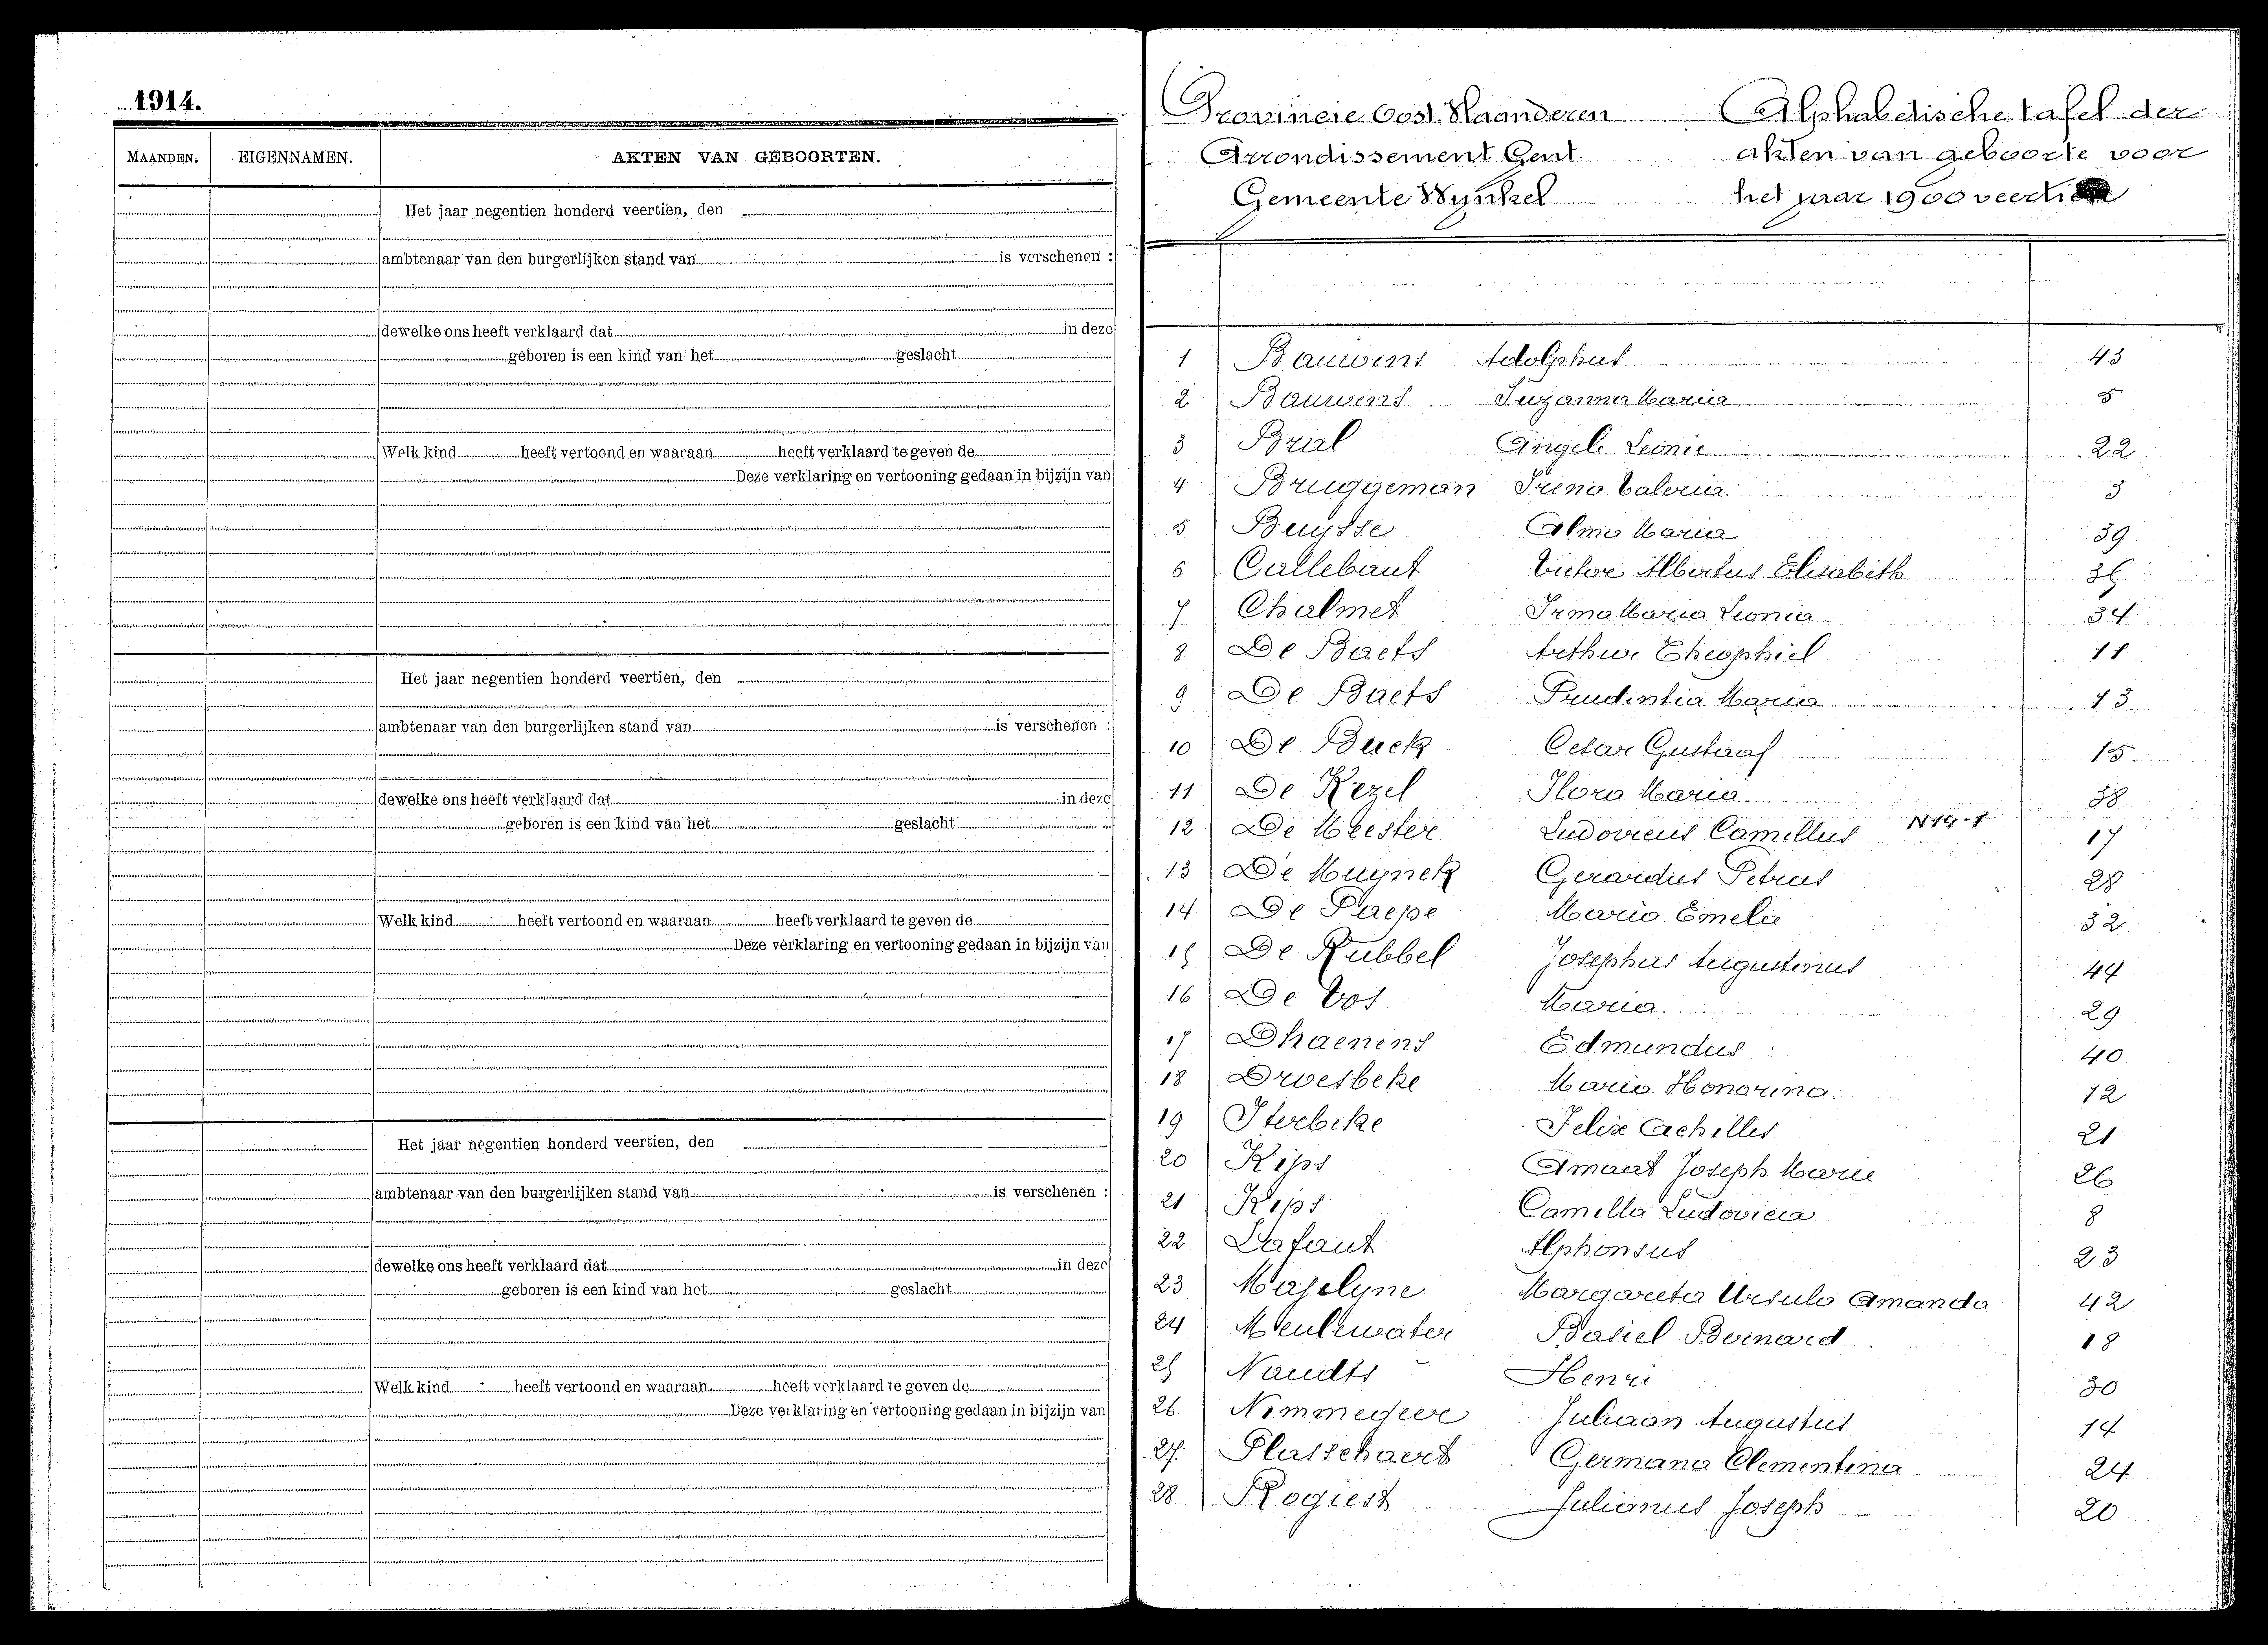 1914.
MAANDEN. EIGENNAMEN. AKTEN VAN GEBOORTEN.
Het jaar negentien honderd veertien, den
ambtenaar van den burgerlijken stand van is verschenen :
dewelke ons heeft verklaard dat in deze
geboren is een kind van het geslacht
Welk kind heeft vertoond en waaraan heeft verklaard te geven de
Deze verklaring en vertooning gedaan in bijzijn van
Het jaar negentien honderd veertien, den
ambtenaar van den burgerlijken stand van is verschenen :
dewelke ons heeft verklaard dat in deze
geboren is een kind van het geslacht
Welk kind heeft vertoond en waaraan heeft verklaard te geven de
Deze verklaring en vertooning gedaan in bijzijn van
Het jaar negentien honderd veertien, den
ambtenaar van den burgerlijken stand van is verschenen :
dewelke ons heeft verklaard dat in deze
geboren is een kind van het geslacht
Welk kind heeft vertoond en waaraan heeft verklaard te geven de
Deze verklaring en vertooning gedaan in bijzijn van
Provincie Oost Vlaanderen Alphabetische tafel der
Arrondissement Gent akten van geboorte voor
Gemeente Wynkel het jaar 1900 veertien
1 Bauwens Adolphus 43
2 Bauwens Suzanna Maria 5
3 Bral Angele Leonie 22
4 Bruggeman Irena Valeria 3
5 Buysse Alma Maria 39
6 Callebaut Victor Albertus Elisabeth 35
7 Chalmet Irma Maria Leonia 34
8 De Baets Arthur Theophiel 11
9 De Baets Prudentia Maria 13
10 De Buck Cesar Gustaaf 15
11 De Kezel Flora Maria 38
12 De Meester Ludovicus Camillus N14-1 17
13 De Muynck Gerardus Petrus 28
14 De Paepe Maria Emelie 32
15 De Rubbel Josephus Augustinus 44
16 De Vos Maria 29
17 Dhaenens Edmundus 40
18 Droesbeke Maria Honorina 12
19 Iterbeke Felix Achilles 21
20 Kips Amaat Joseph Marie 26
21 Kips Camilla Ludovica 8
22 Lafaut Alphonsus 23
23 Maselyne Margareta Ursula Amanda 42
24 Meulewater Basiel Bernard 18
25 Naudts Henri 30
26 Nimmegeer Juliaan Augustus 14
27 Plasschaert Germana Clementina 24
28 Rogiest Julianus Joseph 20